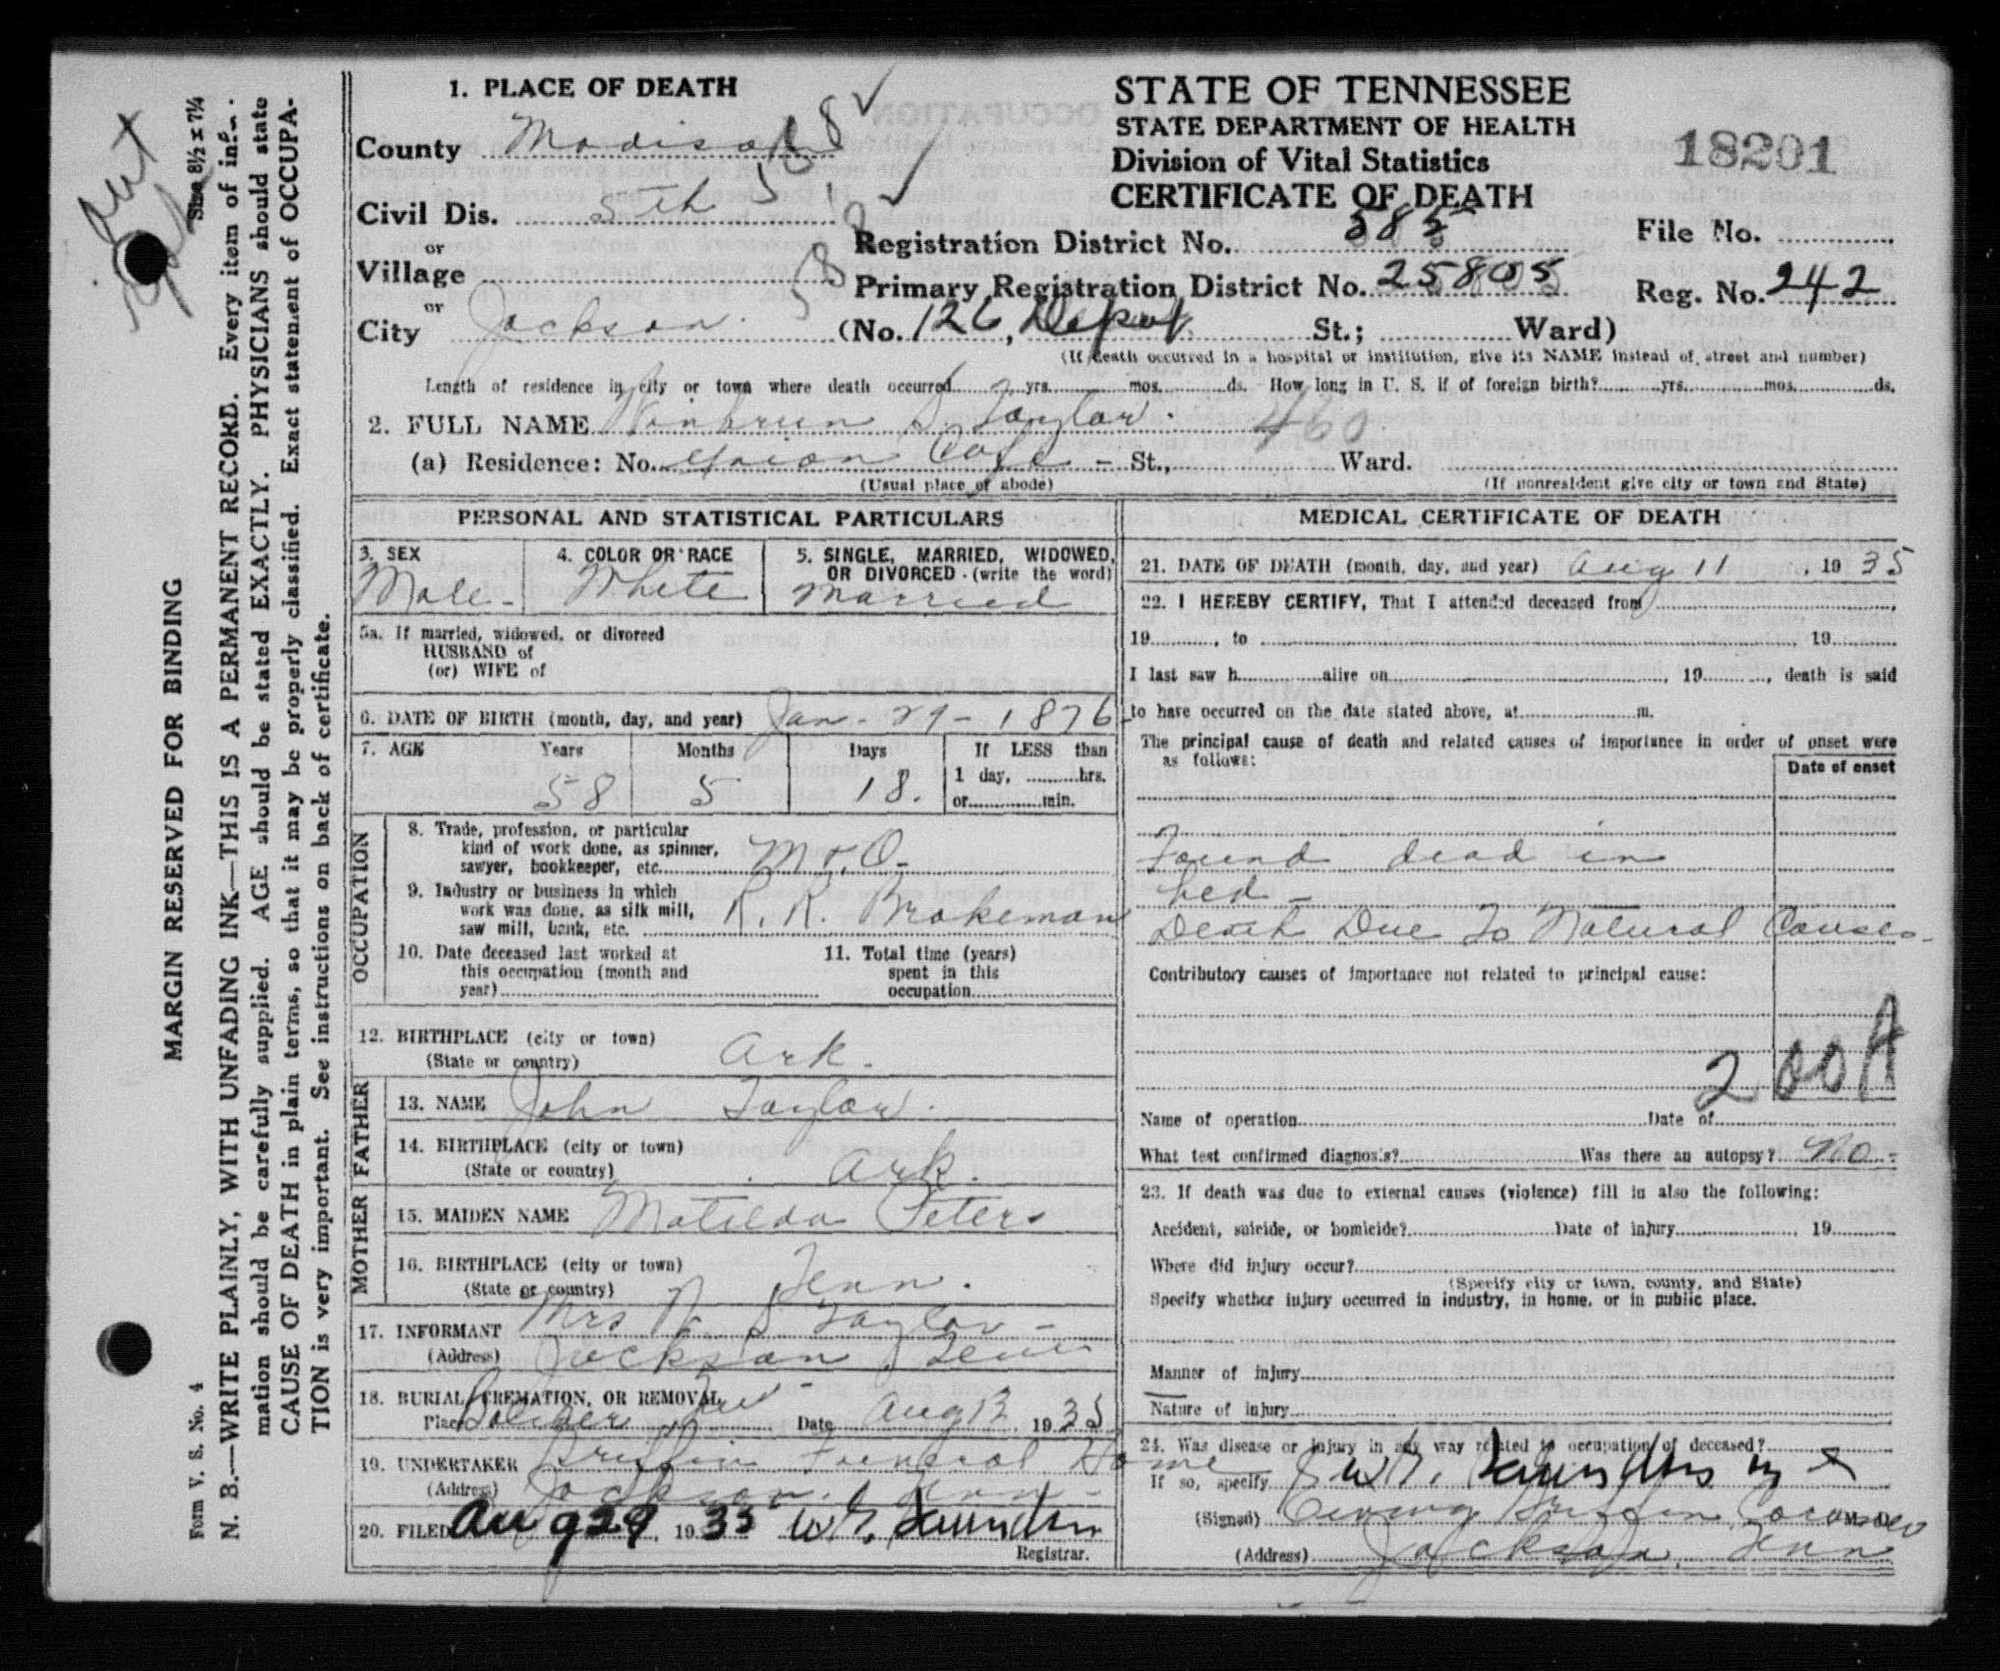 1. PLACE OF DEATH
County Madison
Civil Dis. 5th
or
Village
or
City Jackson.
STATE OF TENNESSEE
STATE DEPARTMENT OF HEALTH
Division of Vital Statistics
CERTIFICATE OF DEATH
18201
Registration District No. 585
File No.
Primary Registration District No. 25805
Reg. No. 242
(No. 126, Depot St.; Ward)
(If death occurred in a hospital or institution, give its NAME instead of street and number)
Length of residence in city or town where death occurred yrs. mos. ds. How long in U. S. if of foreign birth? yrs. mos. ds.
2. FULL NAME S. Taylor. 460
(a) Residence: No. Union Cafe - St., Ward.
(Usual place of abode)
(If nonresident give city or town and State)
PERSONAL AND STATISTICAL PARTICULARS
3. SEX
Male-
4. COLOR OR RACE
White
5. SINGLE, MARRIED, WIDOWED, OR DIVORCED (write the word)
Married
5a. If married, widowed, or divorced
HUSBAND of
(or) WIFE of
6. DATE OF BIRTH (month, day, and year) Jan-29-1876
7. AGE Years Months Days If LESS than
1 day, hrs.
or min.
58 5 18.
OCCUPATION
8. Trade, profession, or particular
kind of work done, as spinner,
sawyer, bookkeeper, etc. M&O-
9. Industry or business in which
work was done, as silk mill,
saw mill, bank, etc. R. R. Brakeman
10. Date deceased last worked at
this occupation (month and
year)
11. Total time (years)
spent in this
occupation
12. BIRTHPLACE (city or town)
(State or country) Ark-
FATHER
13. NAME John Taylor.
14. BIRTHPLACE (city or town)
(State or country) Ark.
MOTHER
15. MAIDEN NAME Matilda Peters
16. BIRTHPLACE (city or town)
(State or country) Tenn.
17. INFORMANT Mrs W. S Taylor-
(Address) Jackson Tenn
18. BURIAL, CREMATION, OR REMOVAL
Place Date Aug 13 1935
19. UNDERTAKER Griffin Funeral Home
(Address) Jackson. Tenn-
20. FILED Aug 29, 1935 W. Saunders
Registrar.
MEDICAL CERTIFICATE OF DEATH
21. DATE OF DEATH (month, day, and year) Aug 11, 1935
22. I HEREBY CERTIFY, That I attended deceased from
19 , to , 19
I last saw h alive on , 19 , death is said
to have occurred on the date stated above, at m.
The principal cause of death and related causes of importance in order of onset were
as follows:
Date of onset
Found dead in
bed-
Death Due To Natural Causes-
Contributory causes of importance not related to principal cause:
200A
Name of operation Date of
What test confirmed diagnosis? Was there an autopsy? No-
23. If death was due to external causes (violence) fill in also the following:
Accident, suicide, or homicide? Date of injury , 19
Where did injury occur?
(Specify city or town, county, and State)
Specify whether injury occurred in industry, in home, or in public place.
Manner of injury
Nature of injury
24. Was disease or injury in any way related to occupation of deceased?
If so, specify Saunders
(Signed) Griffin Coroner M. D.
(Address) Jackson, Tenn
Size 8½ x 7¼
MARGIN RESERVED FOR BINDING
N. B.—WRITE PLAINLY, WITH UNFADING INK—THIS IS A PERMANENT RECORD. Every item of information should be carefully supplied. AGE should be stated EXACTLY. PHYSICIANS should state
CAUSE OF DEATH in plain terms, so that it may be properly classified. Exact statement of OCCUPA-
TION is very important. See instructions on back of certificate.
Form V. S. No. 4